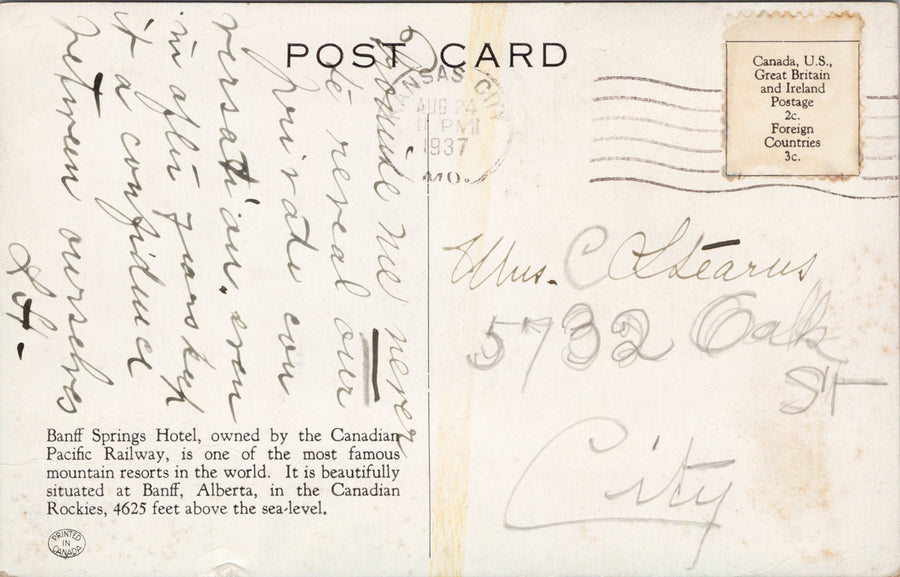 POST CARD
KANSAS CITY
AUG 24
11 PM
1937
MO.
Canada, U.S.,
Great Britain
and Ireland
Postage
2c.
Foreign
Countries
3c.
Promise me never
to reveal our
private con
versation. even
in after years keep
it a confidence
between ourselves
Mrs. C Stearns
5732 Oak
St
City
Banff Springs Hotel, owned by the Canadian
Pacific Railway, is one of the most famous
mountain resorts in the world. It is beautifully
situated at Banff, Alberta, in the Canadian
Rockies, 4625 feet above the sea-level.
PRINTED
IN
CANADA